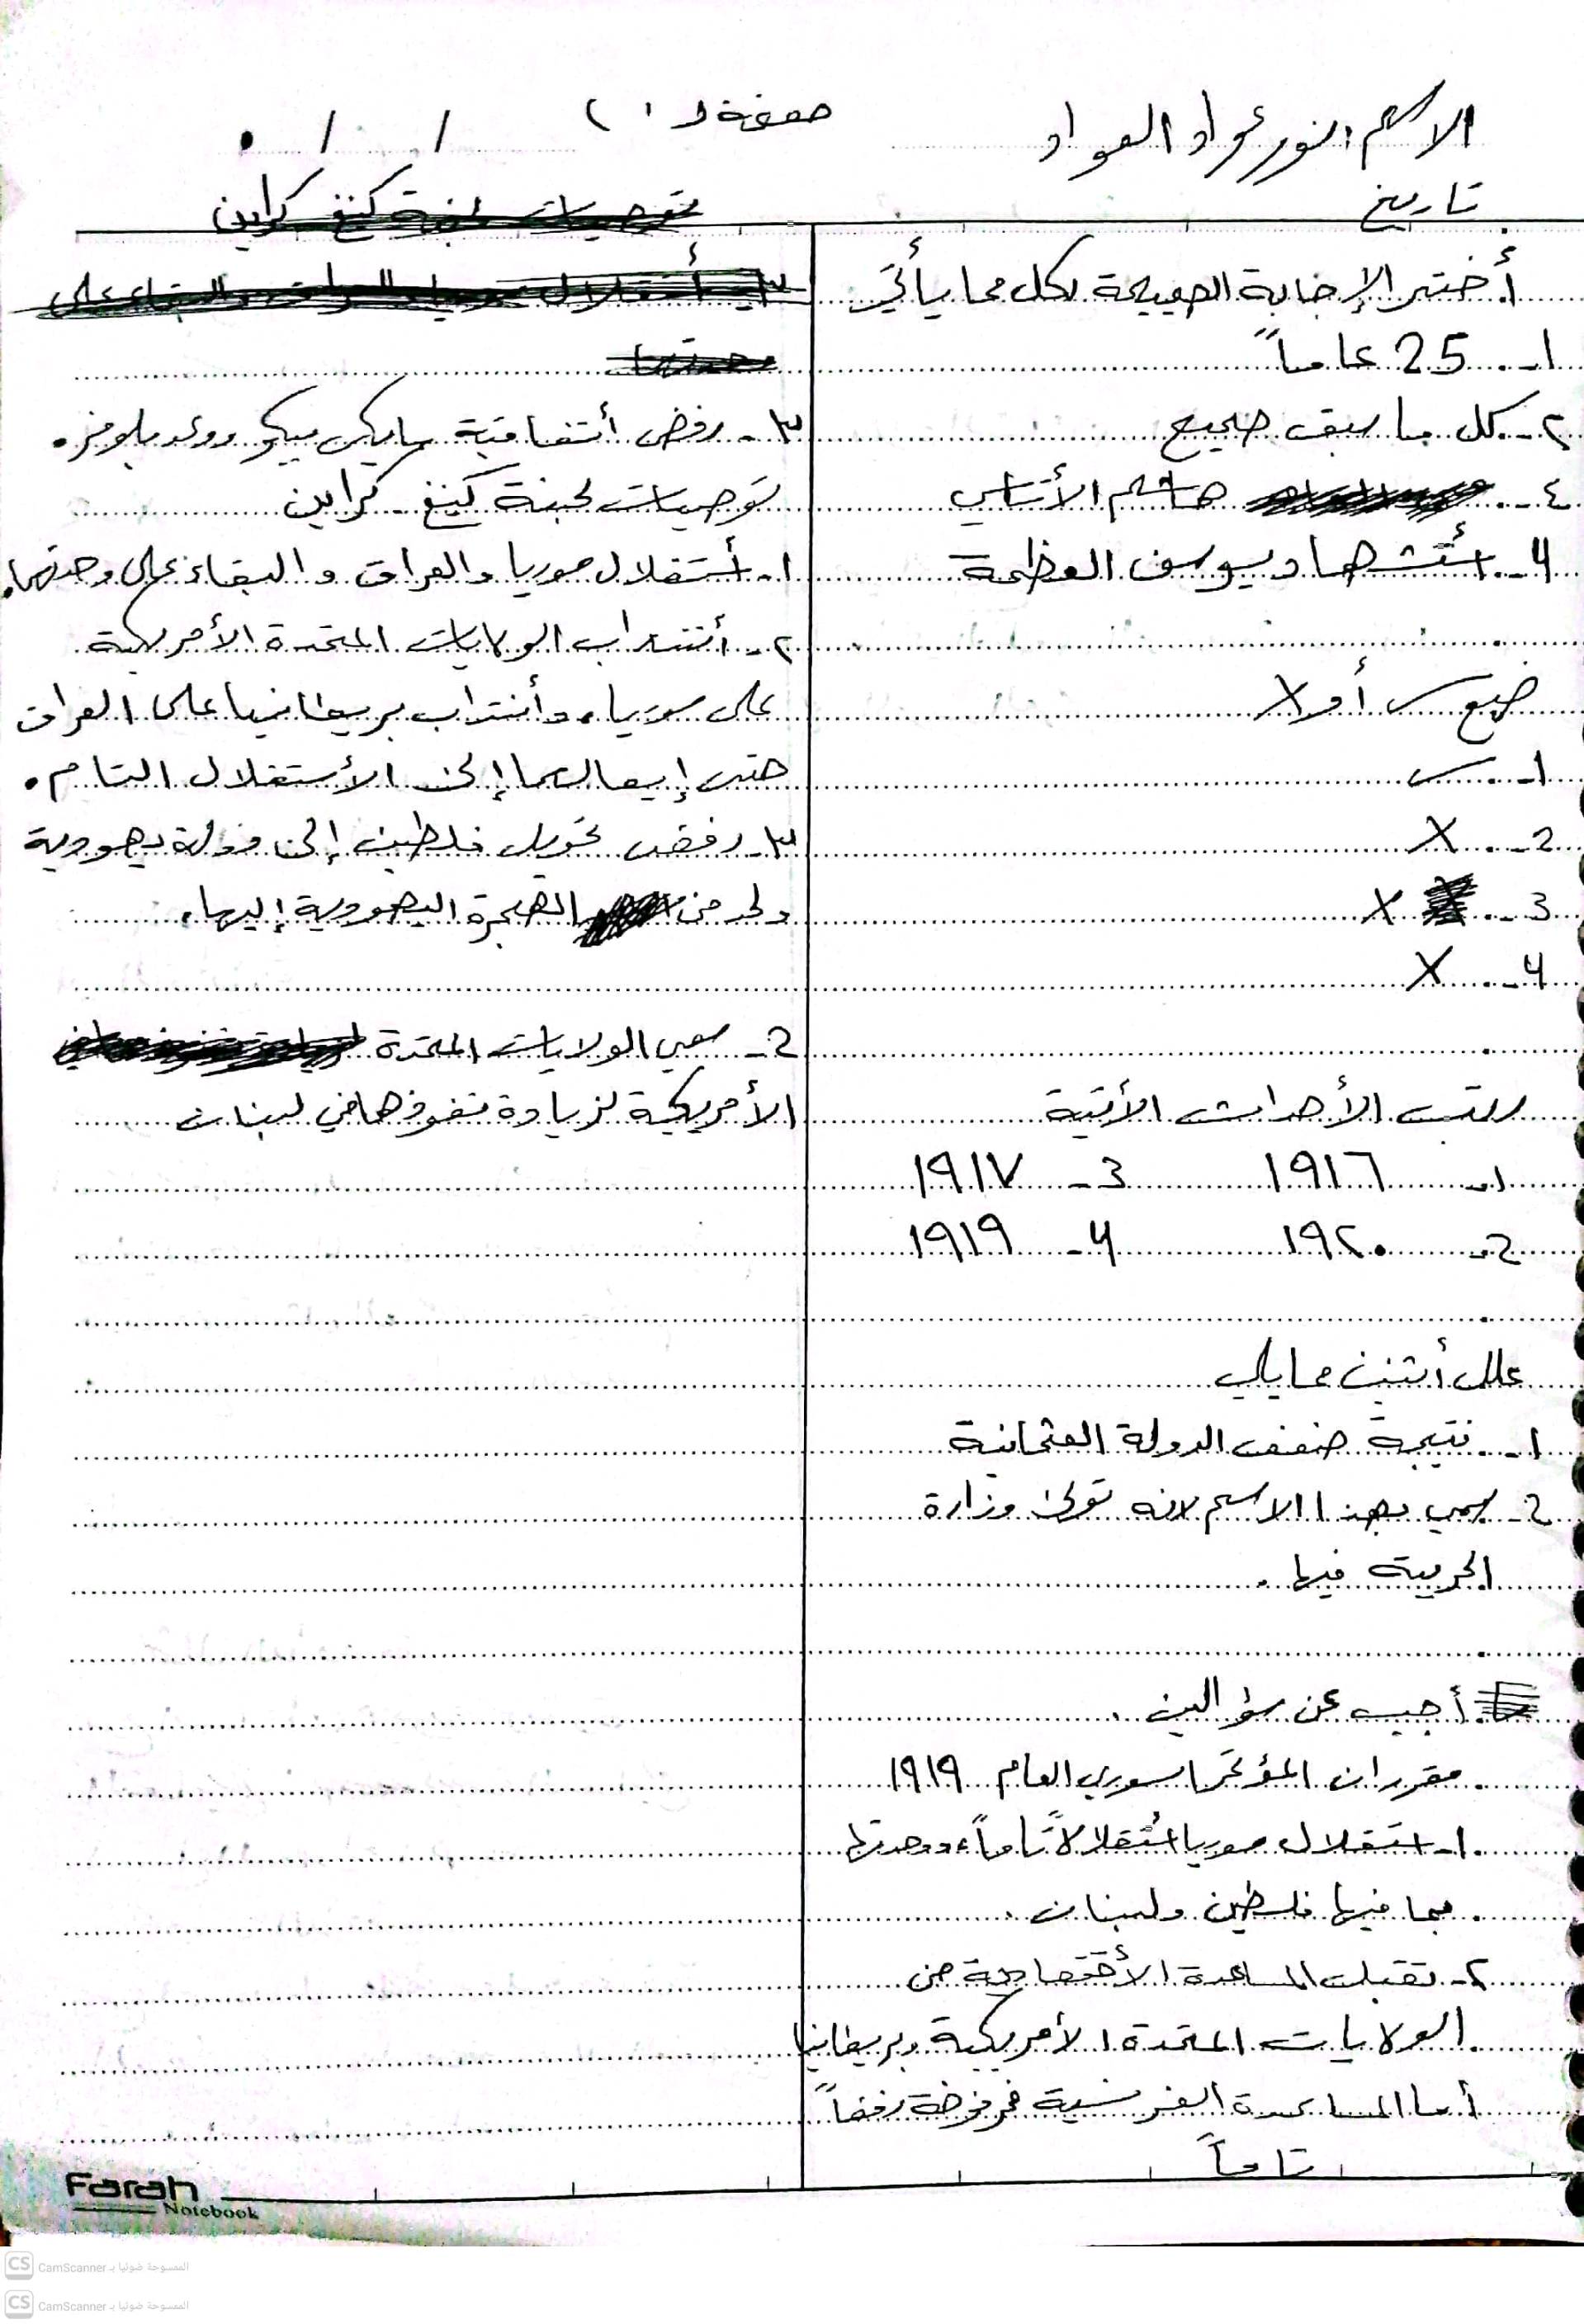 الاسم: نور عواد العواد
صفحة (١)
/ /
تاريخ
توصيات لجنة كينغ كراين
أختر الإجابة الصحيحة لكل مما يأتي
١- 25 عاماً
٢- كل ما سبق صحيح
٤- هاشم الأتاسي
4- استشهاد يوسف العظمة
ضع س أو X
1- س
2- X
3- X
4- X
رتب الأحداث الأتية
١- ١٩١٦ 3- ١٩١٧
2- ١٩٢٠ 4- ١٩١٩
علل أثنين مما يلي
١- نتيجة ضعف الدولة العثمانية
2- سمي بهذا الاسم لانه تولى وزارة
الحربية فيها.
أجب عن سؤالين.
مقررات المؤتمر السوري العام ١٩١٩
١- استقلال سوريا استقلالاً تاماً، ووحدتها
بما فيها فلسطين ولبنان.
٢- تقبلت المساعدة الأقتصادية من
الولايات المتحدة الأمريكية وبريطانيا
أما المساعدة الفرنسية فمرفوضة رفضاً
تاماً
٣- أستقلال سوريا والعراق والبقاء على
وحدتها
٣- رفض أتفاقية سايكس بيكو ووعد بلوفر.
توصيات لجنة كينغ - كراين
١- أستقلال سوريا والعراق والبقاء على وحدتهما.
٢- أنتداب الولايات المتحدة الأمريكية
على سوريا، وأنتداب بريطانيا على العراق
حتى إيصالهما إلى الأستقلال التام.
٣- رفض تحويل فلسطين إلى دولة يهودية
ولحد من الهجرة اليهودية إليها.
2- سعي الولايات المتحدة
الأمريكية لزيادة نفوذها في لبنان
Farah
Notebook
CS CamScanner الممسوحة ضوئيا بـ
CS CamScanner الممسوحة ضوئيا بـ